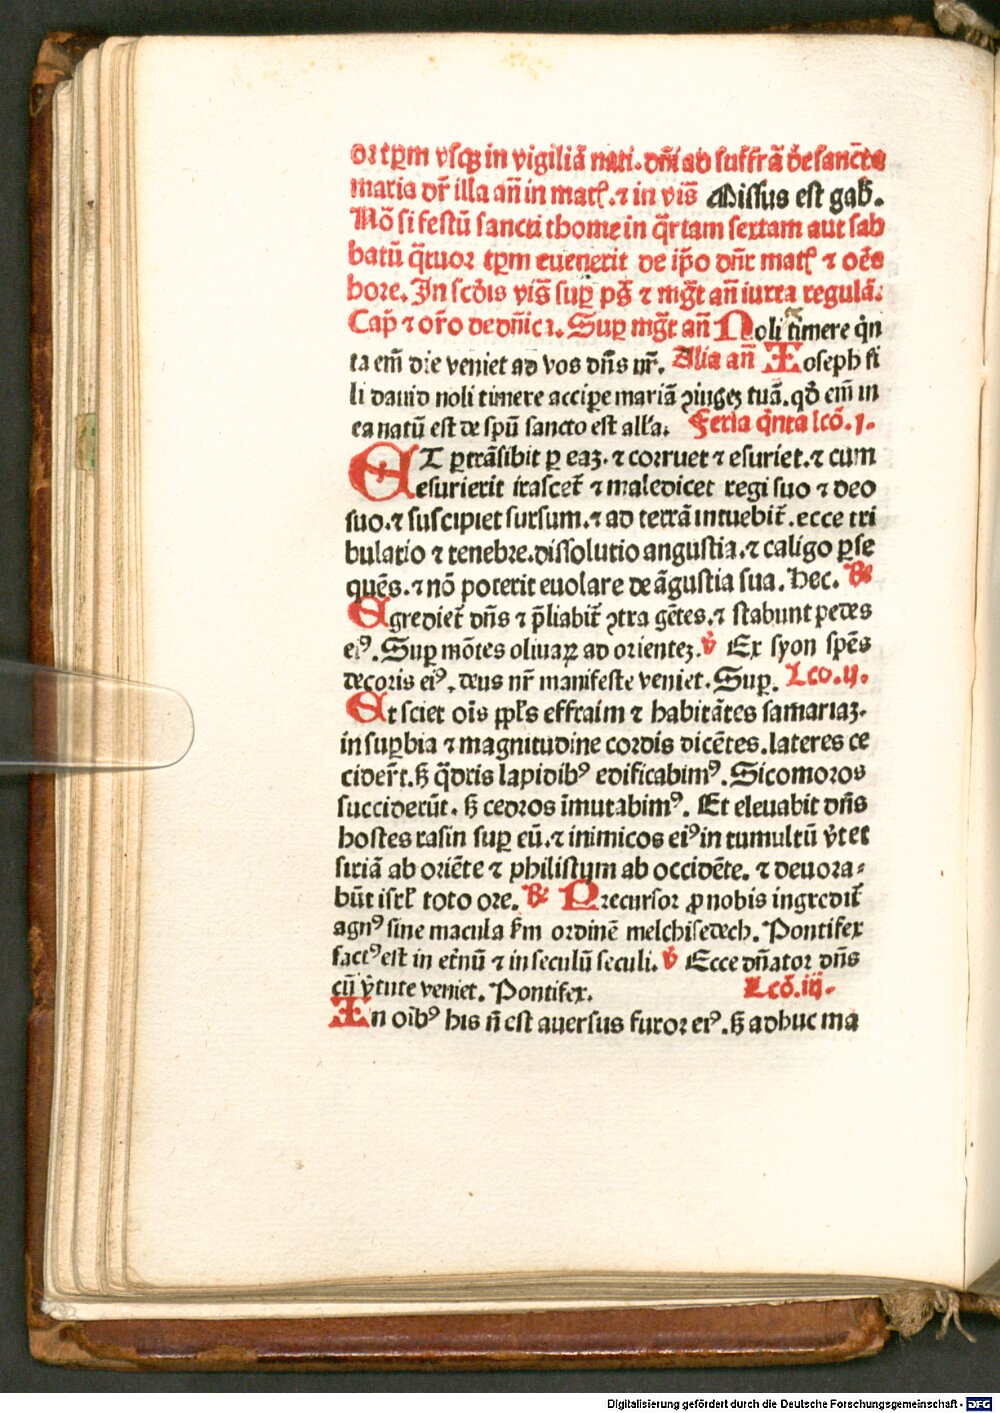 or tꝑm vſqꝫ in vigiliā nati. dn̄i ad ſuffrā de ſancte
maria dr̄ illa an̄ in matꝭ. ⁊ in viꝭ Miſſus eſt gab̄.
Nō ſi feſtū ſancti thome in q̄rtam ſextam aut ſab
batū q̄tuor tꝑm euenerit de ip̄o dn̄r matꝭ ⁊ oēs
hore. In ſcd̄is viꝭ ſuꝑ pꝭ ⁊ mḡt an̄ iuxta regulā.
Cap̄ ⁊ or̄o de dn̄ica. Suꝑ mḡt an̄ Noli timere q̄n
ta em̄ die veniet ad vos dn̄s nr̄. Alia an̄ Ioſeph fi
li dauid noli timere accipe mariā ꝯiugeꝫ tuā. qd̄ em̄ in
ea natū eſt de ſpū ſancto eſt all'a. Feria q̄nta lcō. j.
ET ꝑtrāſibit ꝑ eaꝫ. ⁊ corruet ⁊ eſuriet. ⁊ cum
eſurierit iraſcet̄ ⁊ maledicet regi ſuo ⁊ deo
ſuo. ⁊ ſuſcipiet ſurſum. ⁊ ad terrā intuebit̄. ecce tri
bulatio ⁊ tenebre. diſſolutio anguſtia. ⁊ caligo ꝑſe
quēs. ⁊ nō poterit euolare de āguſtia ſua. Hec. ℞
Egrediet̄ dn̄s ⁊ p̄liabit̄ ꝯtra gētes. ⁊ ſtabunt pedes
eiꝰ. Suꝑ mōtes oliuaꝝ ad orienteꝫ. ℣ Ex ſyon ſpēs
decoris eiꝰ, deus nr̄ manifeſte veniet. Suꝑ. Lco. ij.
Et ſciet oīs ppl's effraim ⁊ habitātes ſamariaꝫ.
in ſuꝑbia ⁊ magnitudine cordis dicētes. lateres ce
cider̄t. ſꝫ q̄dris lapidibꝰ edificabimꝰ. Sicomoros
ſucciderūt. ſꝫ cedros īmutabimꝰ. Et eleuabit dn̄s
hoſtes raſin ſuꝑ eū. ⁊ inimicos eiꝰ in tumultū v̄tet
ſiriā ab oriēte ⁊ philiſtym ab occidēte. ⁊ deuora⸗
būt iſrl' toto ore. ℞ Precurſor ꝓ nobis ingredit̄
agnꝰ ſine macula ẜm ordinē melchiſedech. Pontifex
factꝰ eſt in et̄nū ⁊ in ſeculū ſeculi. ℣ Ecce dn̄ator dn̄s
cū v̄tute veniet. Pontifex. Lcō. iij.
In oībꝰ his n̄ eſt auerſus furor eiꝰ. ſꝫ adhuc ma
Digitalisierung gefördert durch die Deutsche Forschungsgemeinschaft - DFG